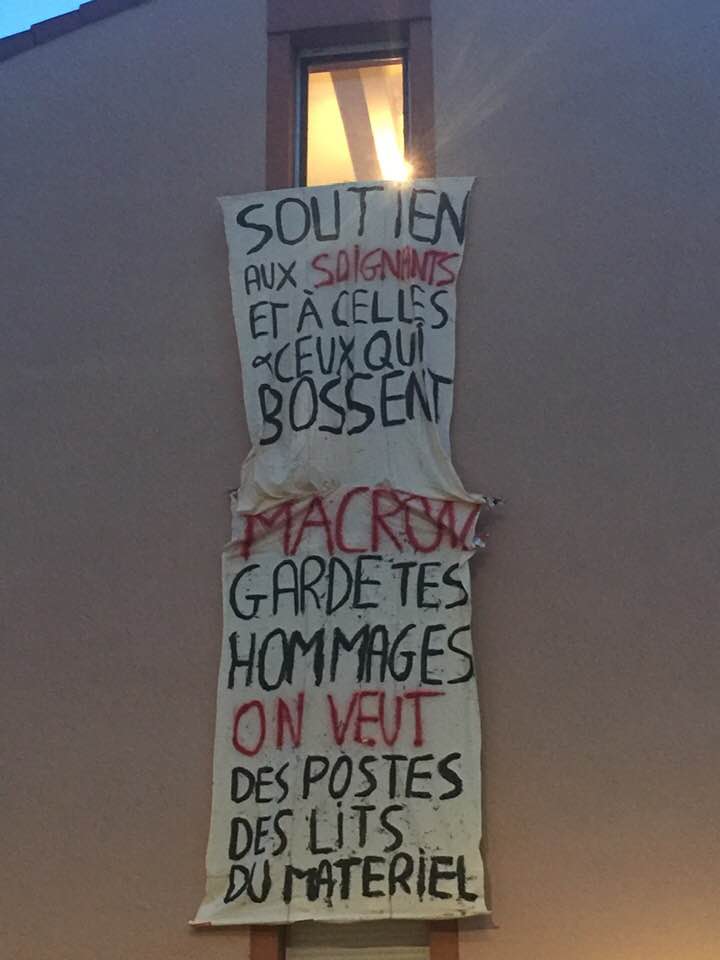 SOUTIEN
AUX SOIGNANTS
ET À CELLES
& CEUX QUI
BOSSENT
MACRON
GARDE TES
HOMMAGES
ON VEUT
DES POSTES
DES LITS
DU MATERIEL